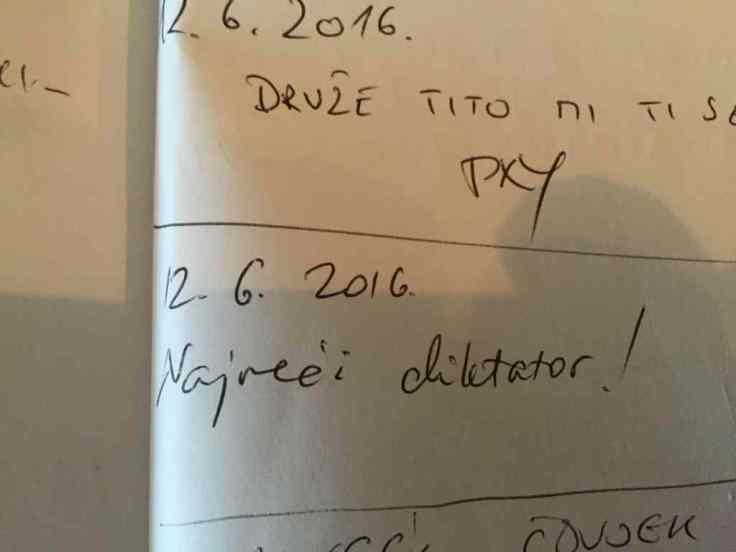 12.6.2016.
DRUŽE TITO MI TI SE
PKY
12.6.2016.
Najveći diktator!
ČOVJEK